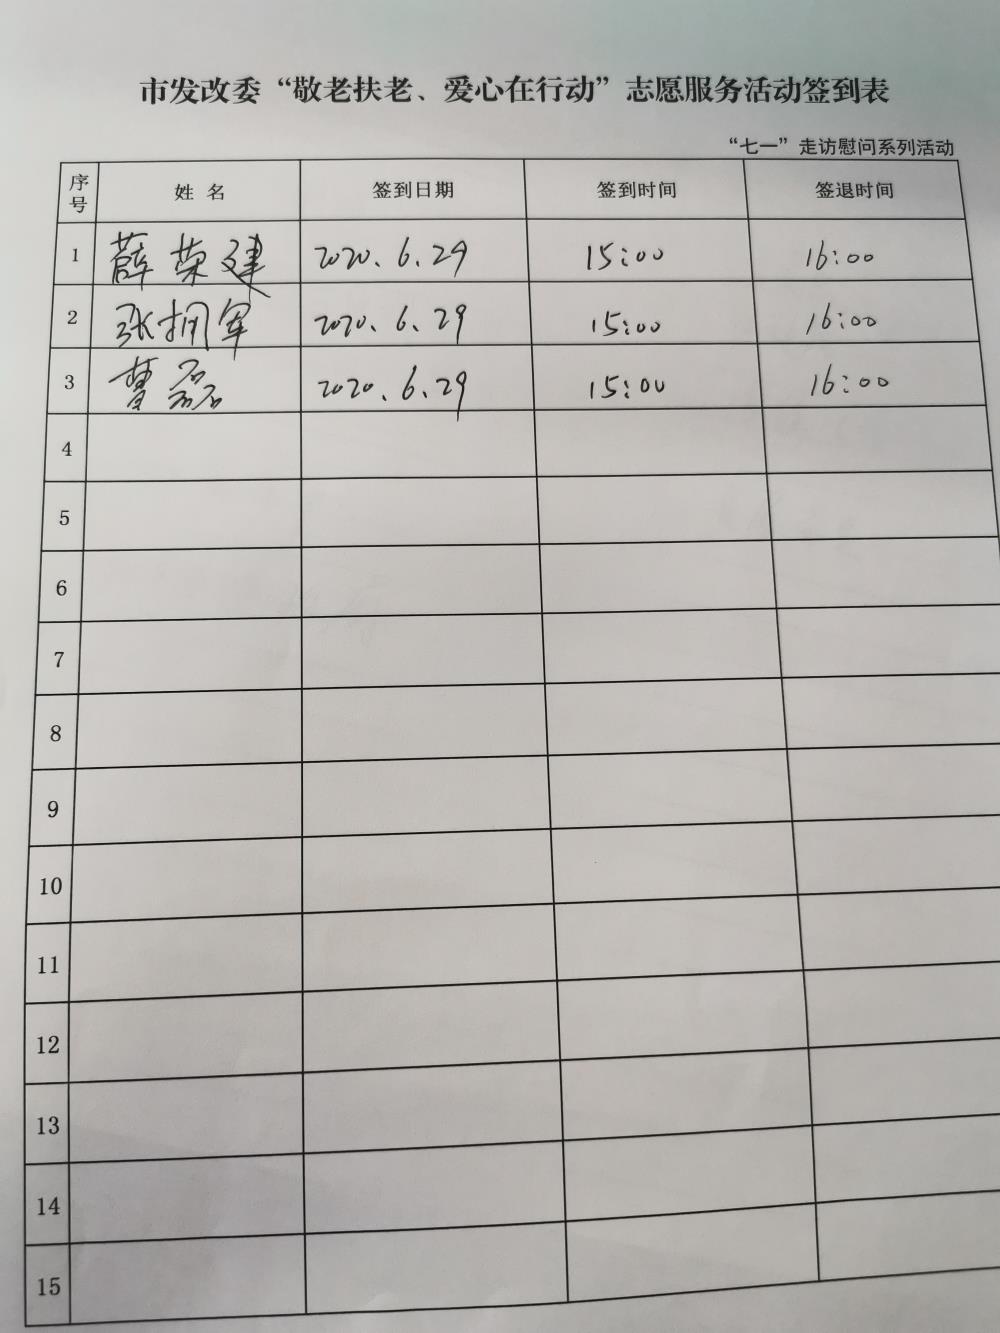 市发改委“敬老扶老、爱心在行动”志愿服务活动签到表
“七一”走访慰问系列活动
序号 姓 名 签到日期 签到时间 签退时间
1 薛荣建 2020.6.29 15:00 16:00
2 张拥军 2020.6.29 15:00 16:00
3 曹磊 2020.6.29 15:00 16:00
4
5
6
7
8
9
10
11
12
13
14
15